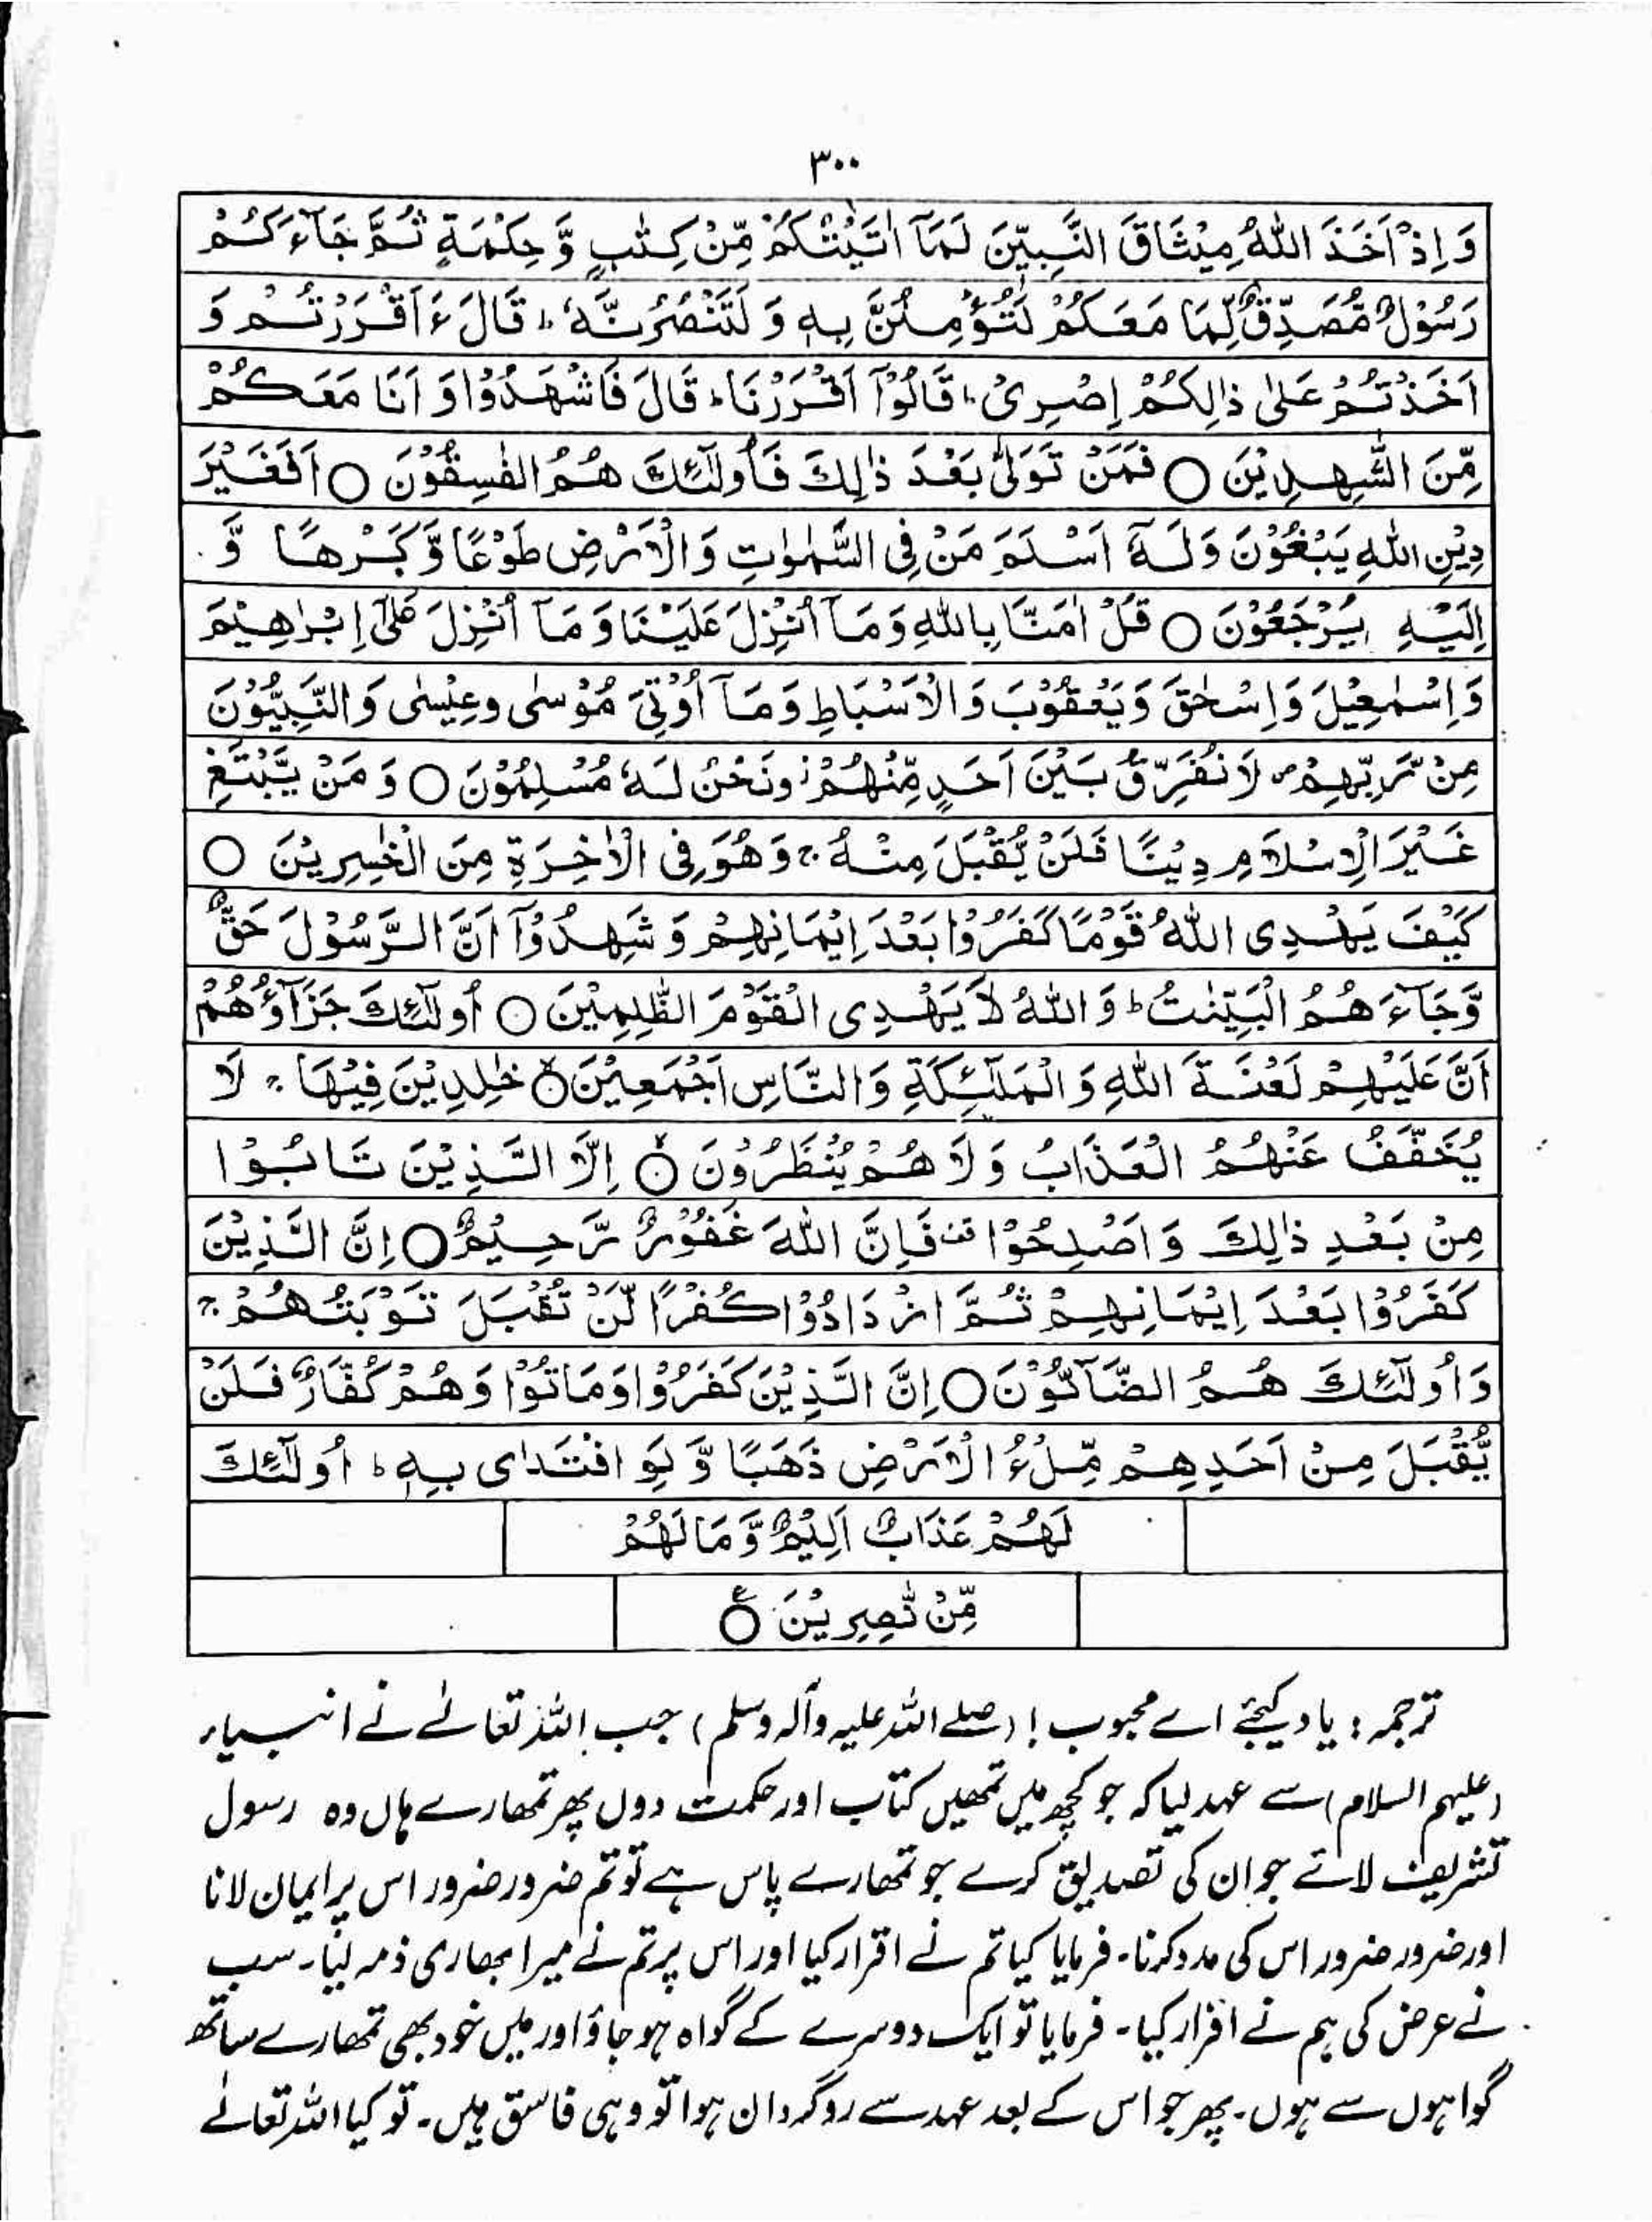 ۳۰۰
وَاِذْ اَخَذَ اللهُ مِيْثَاقَ النَّبِيّٖنَ لَمَآ اٰتَيْتُكُمْ مِّنْ كِتٰبٍ وَّ حِكْمَةٍ ثُمَّ جَآءَكُمْ
رَسُوْلٌ مُّصَدِّقٌ لِّمَا مَعَكُمْ لَتُؤْمِنُنَّ بِهٖ وَ لَتَنْصُرُنَّهٗ ؕ قَالَ ءَاَقْرَرْتُمْ وَ
اَخَذْتُمْ عَلٰى ذٰلِكُمْ اِصْرِیْ ؕ قَالُوْآ اَقْرَرْنَا ؕ قَالَ فَاشْهَدُوْا وَ اَنَا مَعَكُمْ
مِّنَ الشّٰهِدِيْنَ ○ فَمَنْ تَوَلّٰى بَعْدَ ذٰلِكَ فَاُولٰٓئِكَ هُمُ الْفٰسِقُوْنَ ○ اَفَغَيْرَ
دِيْنِ اللهِ يَبْغُوْنَ وَلَهٗٓ اَسْلَمَ مَنْ فِى السَّمٰوٰتِ وَالْاَرْضِ طَوْعًا وَّكَرْهًا وَّ
اِلَيْهِ يُرْجَعُوْنَ ○ قُلْ اٰمَنَّا بِاللهِ وَمَآ اُنْزِلَ عَلَيْنَا وَمَآ اُنْزِلَ عَلٰٓى اِبْرٰهِيْمَ
وَاِسْمٰعِيْلَ وَاِسْحٰقَ وَيَعْقُوْبَ وَالْاَسْبَاطِ وَمَآ اُوْتِیَ مُوْسٰى وعِيْسٰى وَالنَّبِيُّوْنَ
مِنْ رَّبِّهِمْ ص لَا نُفَرِّقُ بَيْنَ اَحَدٍ مِّنْهُمْ ز ونَحْنُ لَهٗ مُسْلِمُوْنَ ○ وَ مَنْ يَّبْتَغِ
غَيْرَ الْاِسْلَامِ دِيْنًا فَلَنْ يُّقْبَلَ مِنْهُ ج وَهُوَ فِى الْاٰخِرَةِ مِنَ الْخٰسِرِيْنَ ○
كَيْفَ يَهْدِى اللهُ قَوْمًا كَفَرُوْا بَعْدَ اِيْمَانِهِمْ وَ شَهِدُوْآ اَنَّ الرَّسُوْلَ حَقٌّ
وَّجَآءَ هُمُ الْبَيِّنٰتُ ؕ وَاللهُ لَا يَهْدِى الْقَوْمَ الظّٰلِمِيْنَ ○ اُولٰٓئِكَ جَزَآؤُهُمْ
اَنَّ عَلَيْهِمْ لَعْنَةَ اللهِ وَالْمَلٰٓئِكَةِ وَالنَّاسِ اَجْمَعِيْنَ ○ خٰلِدِيْنَ فِيْهَا ج لَا
يُخَفَّفُ عَنْهُمُ الْعَذَابُ وَلَا هُمْ يُنْظَرُوْنَ ○ اِلَّا الَّذِيْنَ تَابُوْا
مِنْ بَعْدِ ذٰلِكَ وَاَصْلِحُوْا قف فَاِنَّ اللهَ غَفُوْرٌ رَّحِيْمٌ ○ اِنَّ الَّذِيْنَ
كَفَرُوْا بَعْدَ اِيْمَانِهِمْ ثُمَّ ازْدَادُوْا كُفْرًا لَّنْ تُقْبَلَ تَوْبَتُهُمْ ج
وَاُولٰٓئِكَ هُمُ الضَّآلُّوْنَ ○ اِنَّ الَّذِيْنَ كَفَرُوْا وَمَاتُوْا وَهُمْ كُفَّارٌ فَلَنْ
يُّقْبَلَ مِنْ اَحَدِهِمْ مِّلْءُ الْاَرْضِ ذَهَبًا وَّ لَوِ افْتَدٰى بِهٖ ؕ اُولٰٓئِكَ
لَهُمْ عَذَابٌ اَلِيْمٌ وَّمَا لَهُمْ
مِّنْ نّٰصِرِيْنَ ○ ع
ترجمہ: یاد کیجئے اے محبوب! (صلے اللہ علیہ وآلہ وسلم) جب اللہ تعالےٰ نے انبیاء
(علیہم السلام) سے عہد لیا کہ جو کچھ میں تمھیں کتاب اور حکمت دوں پھر تمھارے ہاں وہ رسول
تشریف لائے جو ان کی تصدیق کرے جو تمھارے پاس ہے تو تم ضرور ضرور اس پر ایمان لانا
اور ضرور ضرور اس کی مدد کرنا۔ فرمایا کیا تم نے اقرار کیا اور اس پر تم نے میرا بھاری ذمہ لیا۔ سب
نے عرض کی ہم نے اقرار کیا۔ فرمایا تو ایک دوسرے کے گواہ ہو جاؤ اور میں خود بھی تمھارے ساتھ
گواہوں سے ہوں۔ پھر جو اس کے بعد عہد سے روگردان ہوا تو وہی فاسق ہیں۔ تو کیا اللہ تعالےٰ